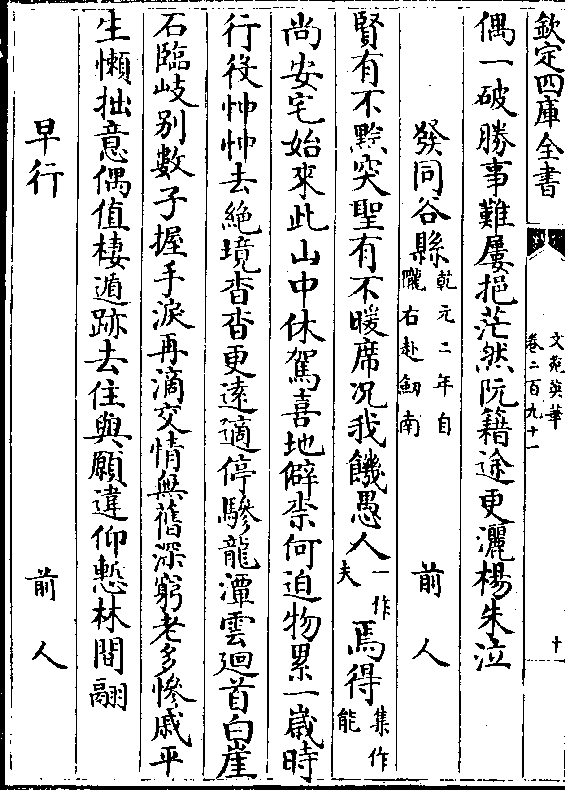 欽定四庫全書
文苑英華
卷二百九十一
十
偶一破勝事難屢挹茫然阮籍途更灑楊朱泣
發同谷縣 乾元二年自隴右赴劒南 前人
賢有不黔突聖有不暖席况我饑愚人 一作夫 焉得 集作能
尚安宅始來此山中休駕喜地僻柰何迫物累一嵗時
行役忡忡去絶境杳杳更逺適停驂龍潭雲廻首白崖
石臨岐别數子握手淚再滴交情無舊深窮老多慘戚平
生懶拙意偶值棲遁跡去住與願違仰慙林間翮
早行 前人